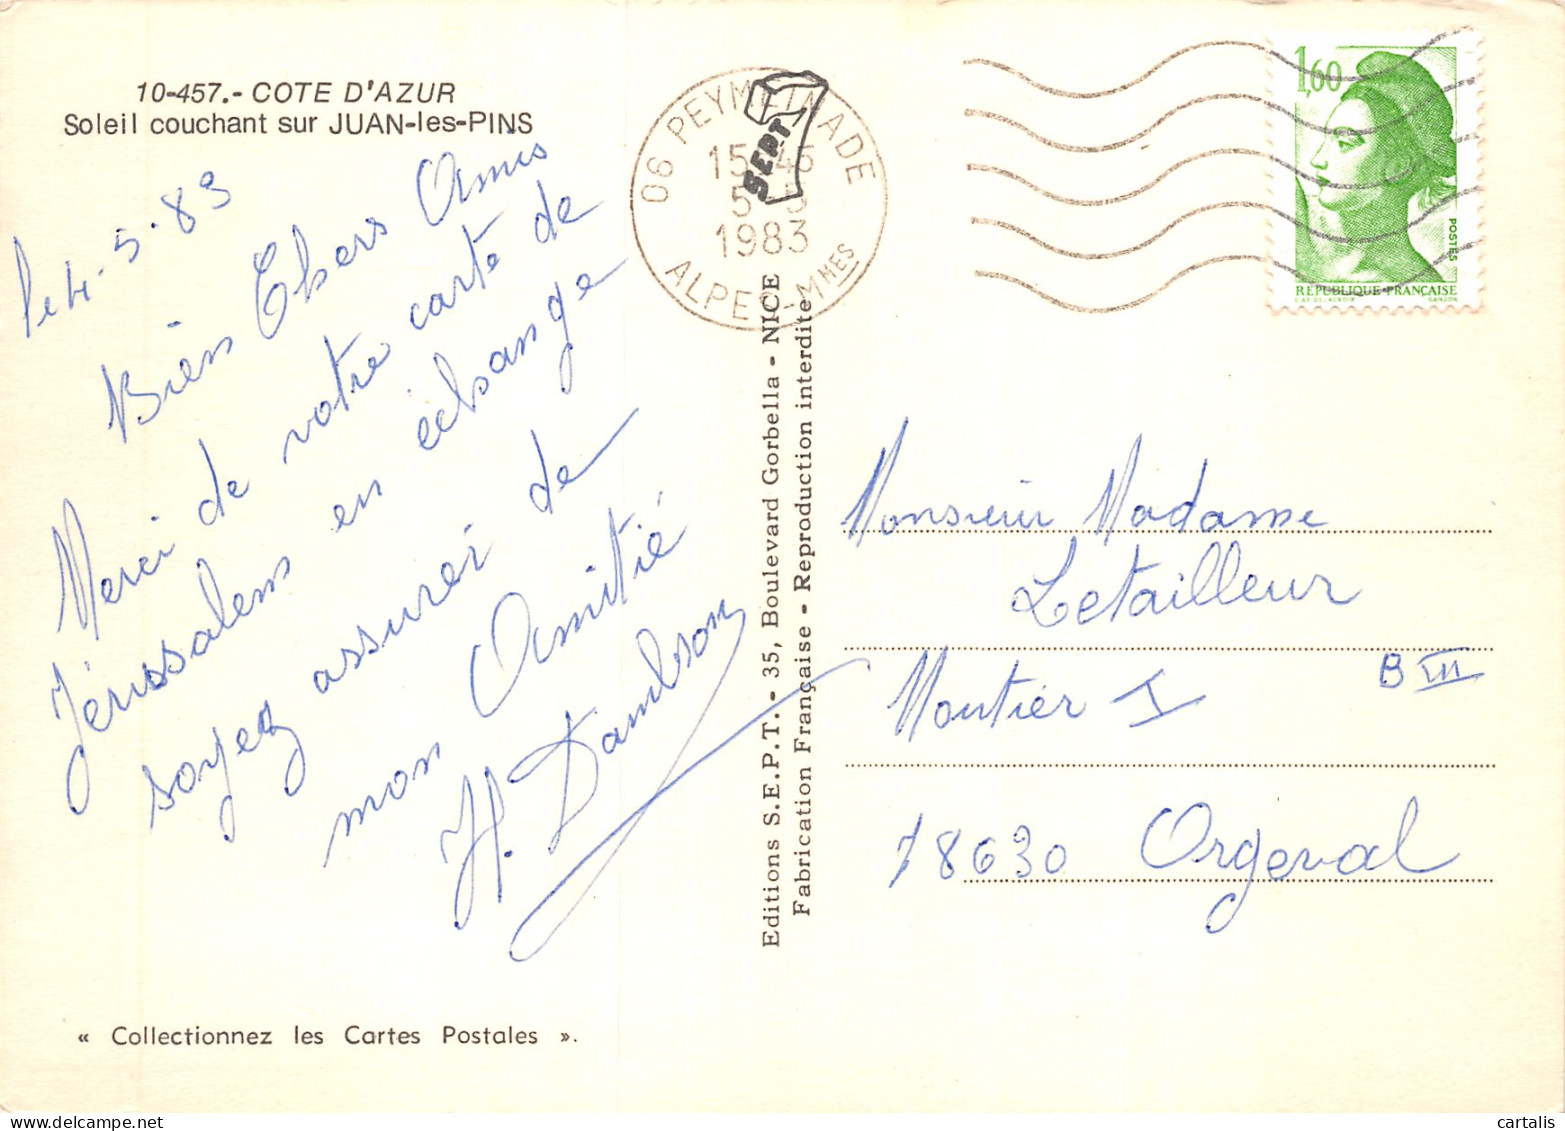 10-457.- COTE D'AZUR
Soleil couchant sur JUAN-les-PINS
Le 4. 5. 83
Bien Chers Amis
Merci de votre carte de
Jérusalem en échange
soyez assurer de
mon Amitié
06 PEYMEINADE
15 45
5-5
1983
ALPES-MMES
SEPT
1,60
POSTES
RÉPUBLIQUE-FRANÇAISE
Editions S.E.P.T. - 35, Boulevard Gorbella - NICE
Fabrication Française - Reproduction interdite
Monsieur Madame
Letailleur
Moutier I B III
78630 Orgeval
« Collectionnez les Cartes Postales ».
cartalis